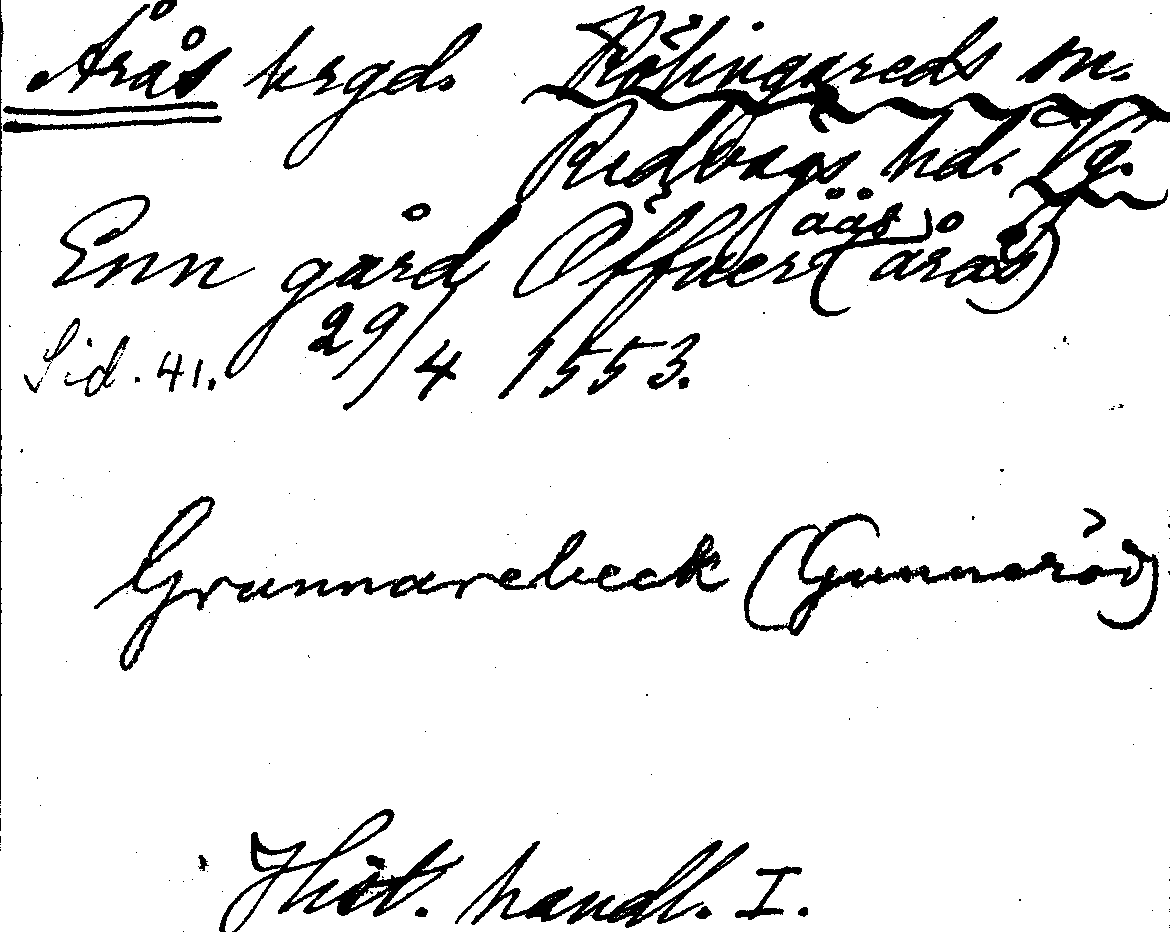 Årås hrgd. Kölingareds sn.
Redvägs hd. Vg.
ääs)
Enn gård Öffuer (årås)
Sid. 41. 29/4 1553.
Grunnarebeck (Gunneröd)
Hist. handl. I.